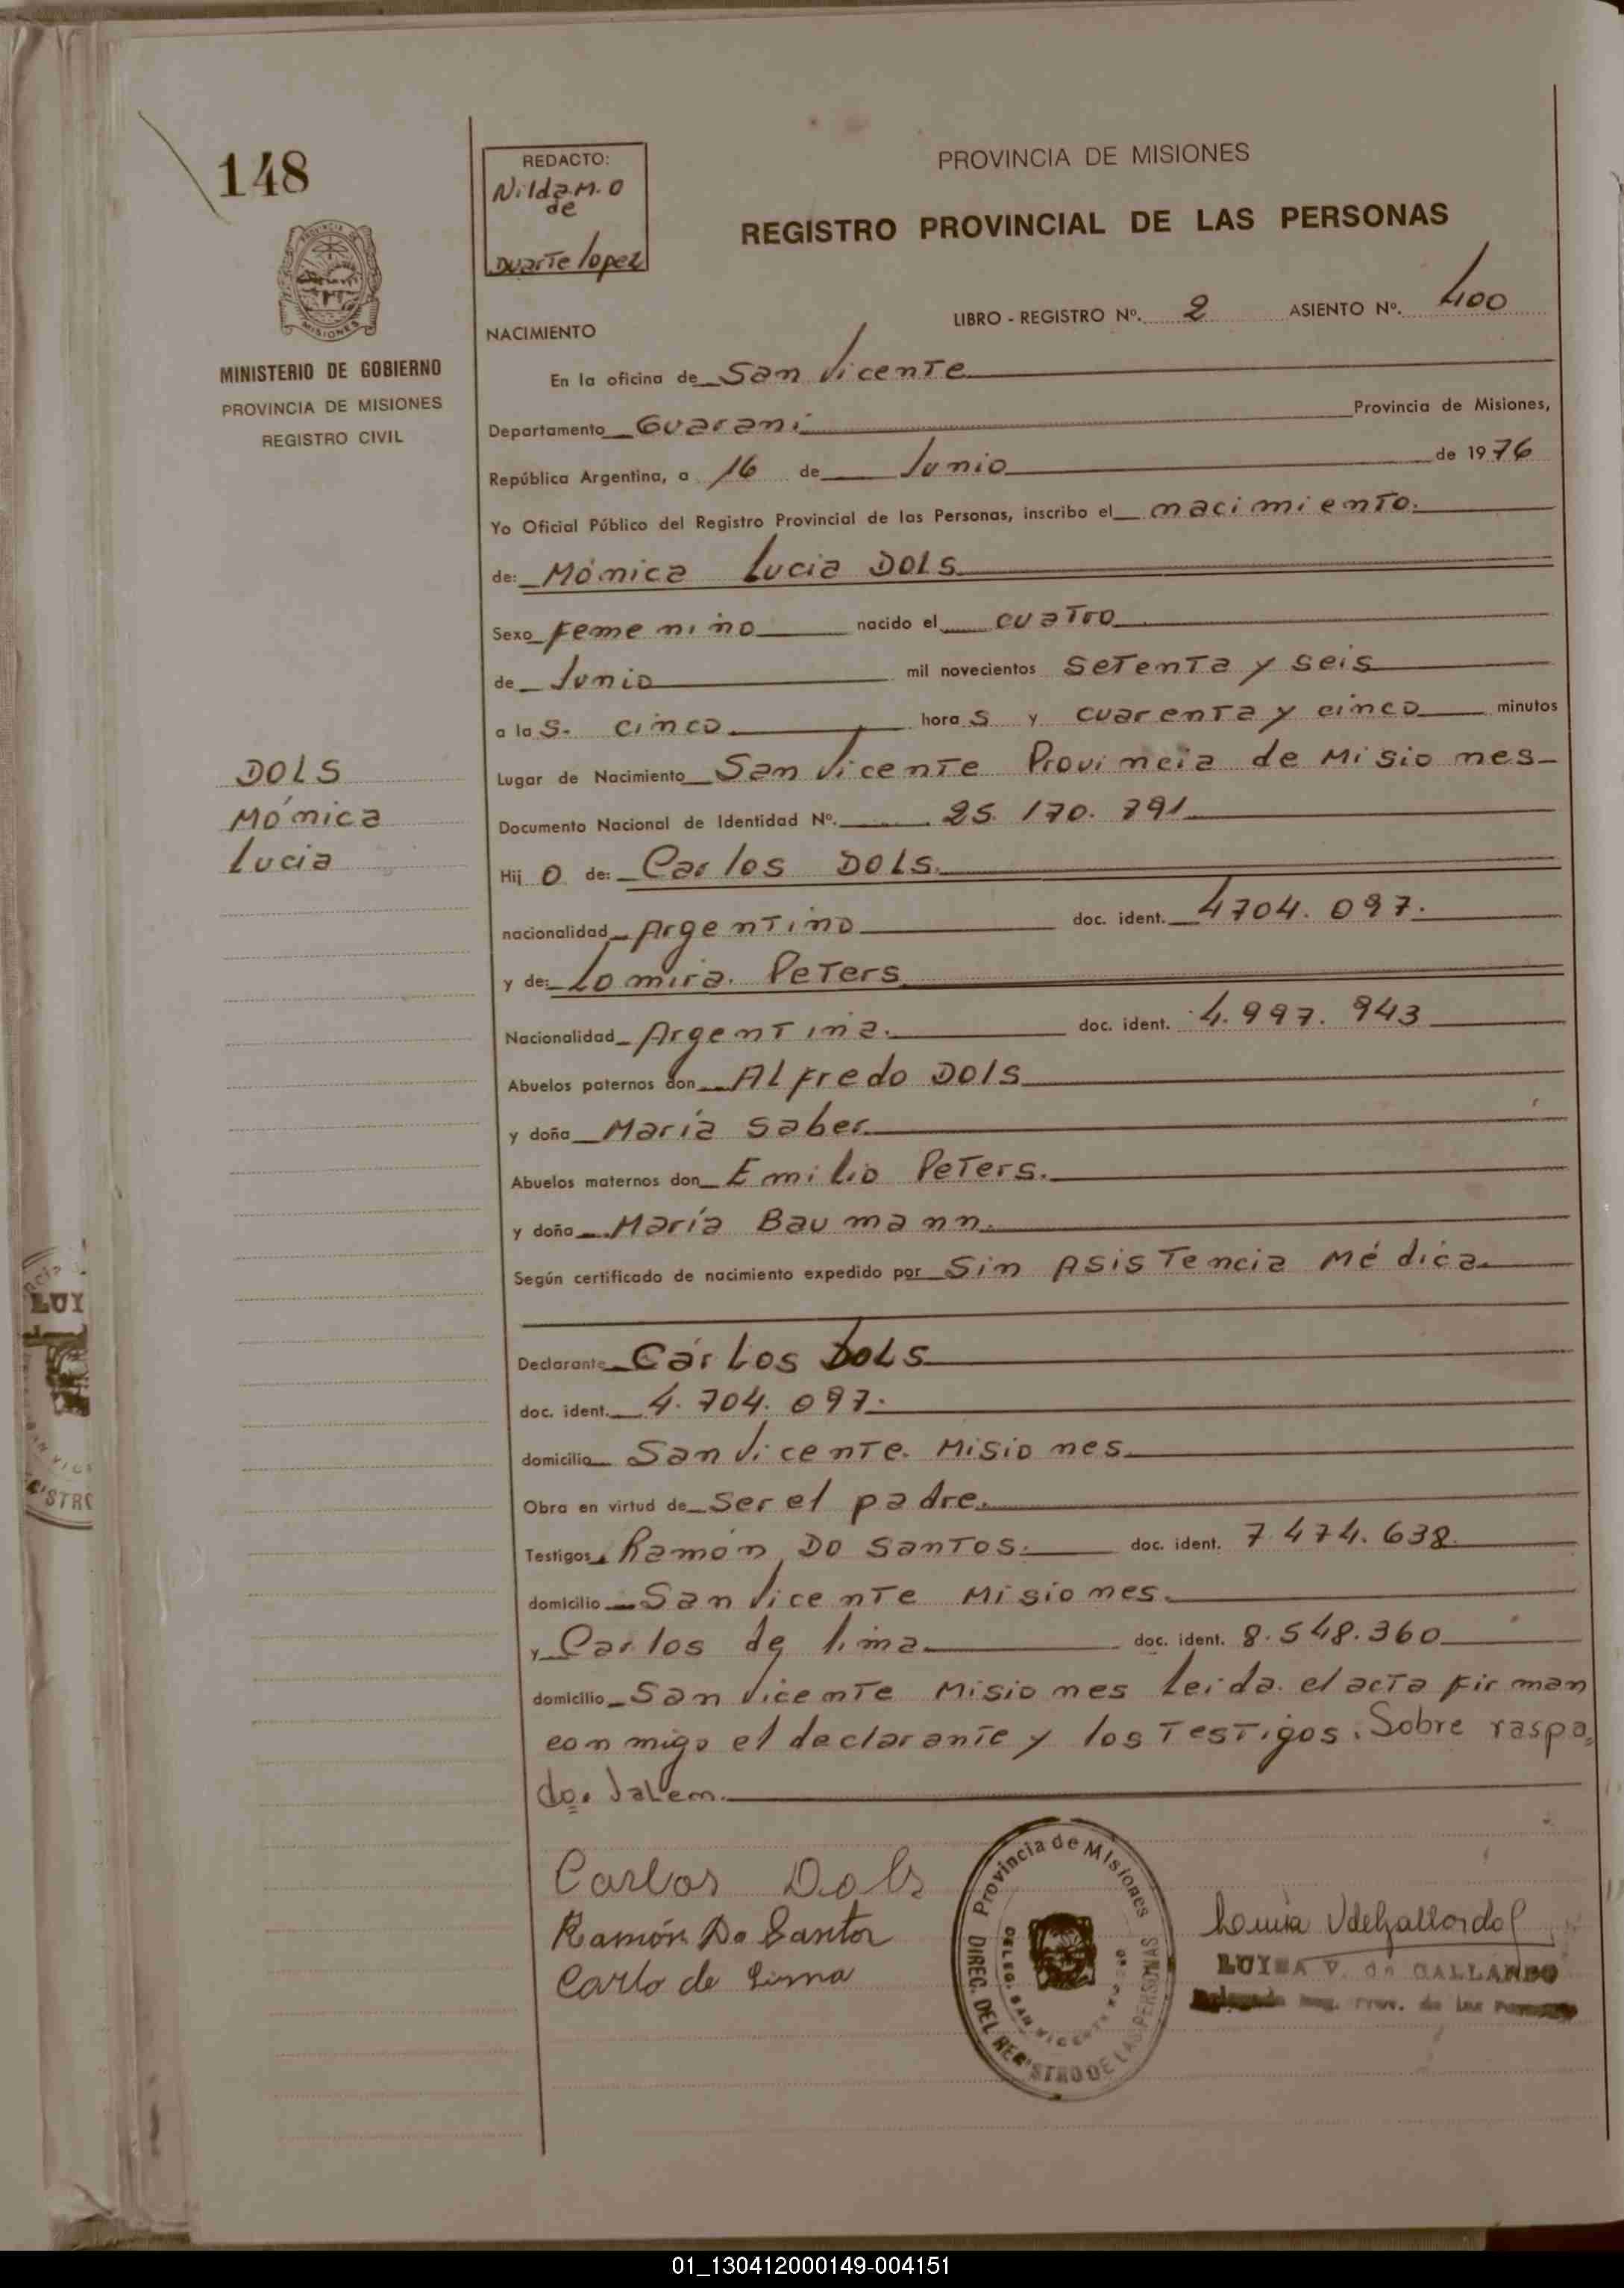 148
REDACTO:
Nilda M. O
de
Duarte lopez
PROVINCIA DE MISIONES
REGISTRO PROVINCIAL DE LAS PERSONAS
MISIONES
MINISTERIO DE GOBIERNO
PROVINCIA DE MISIONES
REGISTRO CIVIL
LIBRO - REGISTRO Nº. 2 ASIENTO Nº. 400
NACIMIENTO
En la oficina de San Vicente
Departamento Guarani Provincia de Misiones,
República Argentina, a 16 de Junio de 1976
Yo Oficial Público del Registro Provincial de las Personas, inscribo el nacimiento.
de: Mónica Lucia DOLS
Sexo Femenino nacido el cuatro
de Junio mil novecientos setenta y seis
a las. cinco horas y cuarenta y cinco minutos
Lugar de Nacimiento San Vicente Provincia de Misiones
DOLS
Mónica
Lucia
Documento Nacional de Identidad Nº. 25.170.791
Hij o de: Carlos DOLS.
nacionalidad Argentino doc. ident. 4704.097.
y de: Lomira. Peters
Nacionalidad Argentina. doc. ident. 4.997.943
Abuelos paternos don Alfredo Dols
y doña María Saber
Abuelos maternos don Emilio Peters.
y doña María Baumann.
Según certificado de nacimiento expedido por Sin Asistencia Médica
Declarante Cárlos Dols
doc. ident. 4.704.097.
domicilio San Vicente. Misiones
Obra en virtud de ser el padre.
Testigos Ramón Do Santos. doc. ident. 7.474.638.
domicilio San Vicente Misiones.
y Carlos de lima doc. ident. 8.548.360
domicilio San Vicente Misiones Leida el acta firman
conmigo el declarante y los Testigos. Sobre raspa=
do. Valem.
Carlos Dols
Ramón Do Santos
Carlo de Lima
Provincia de Misiones
DIREC. DEL REGISTRO DE LAS PERSONAS
DELEG. SAN VICENTE
LUISA V. de GALLARDO
01_130412000149-004151